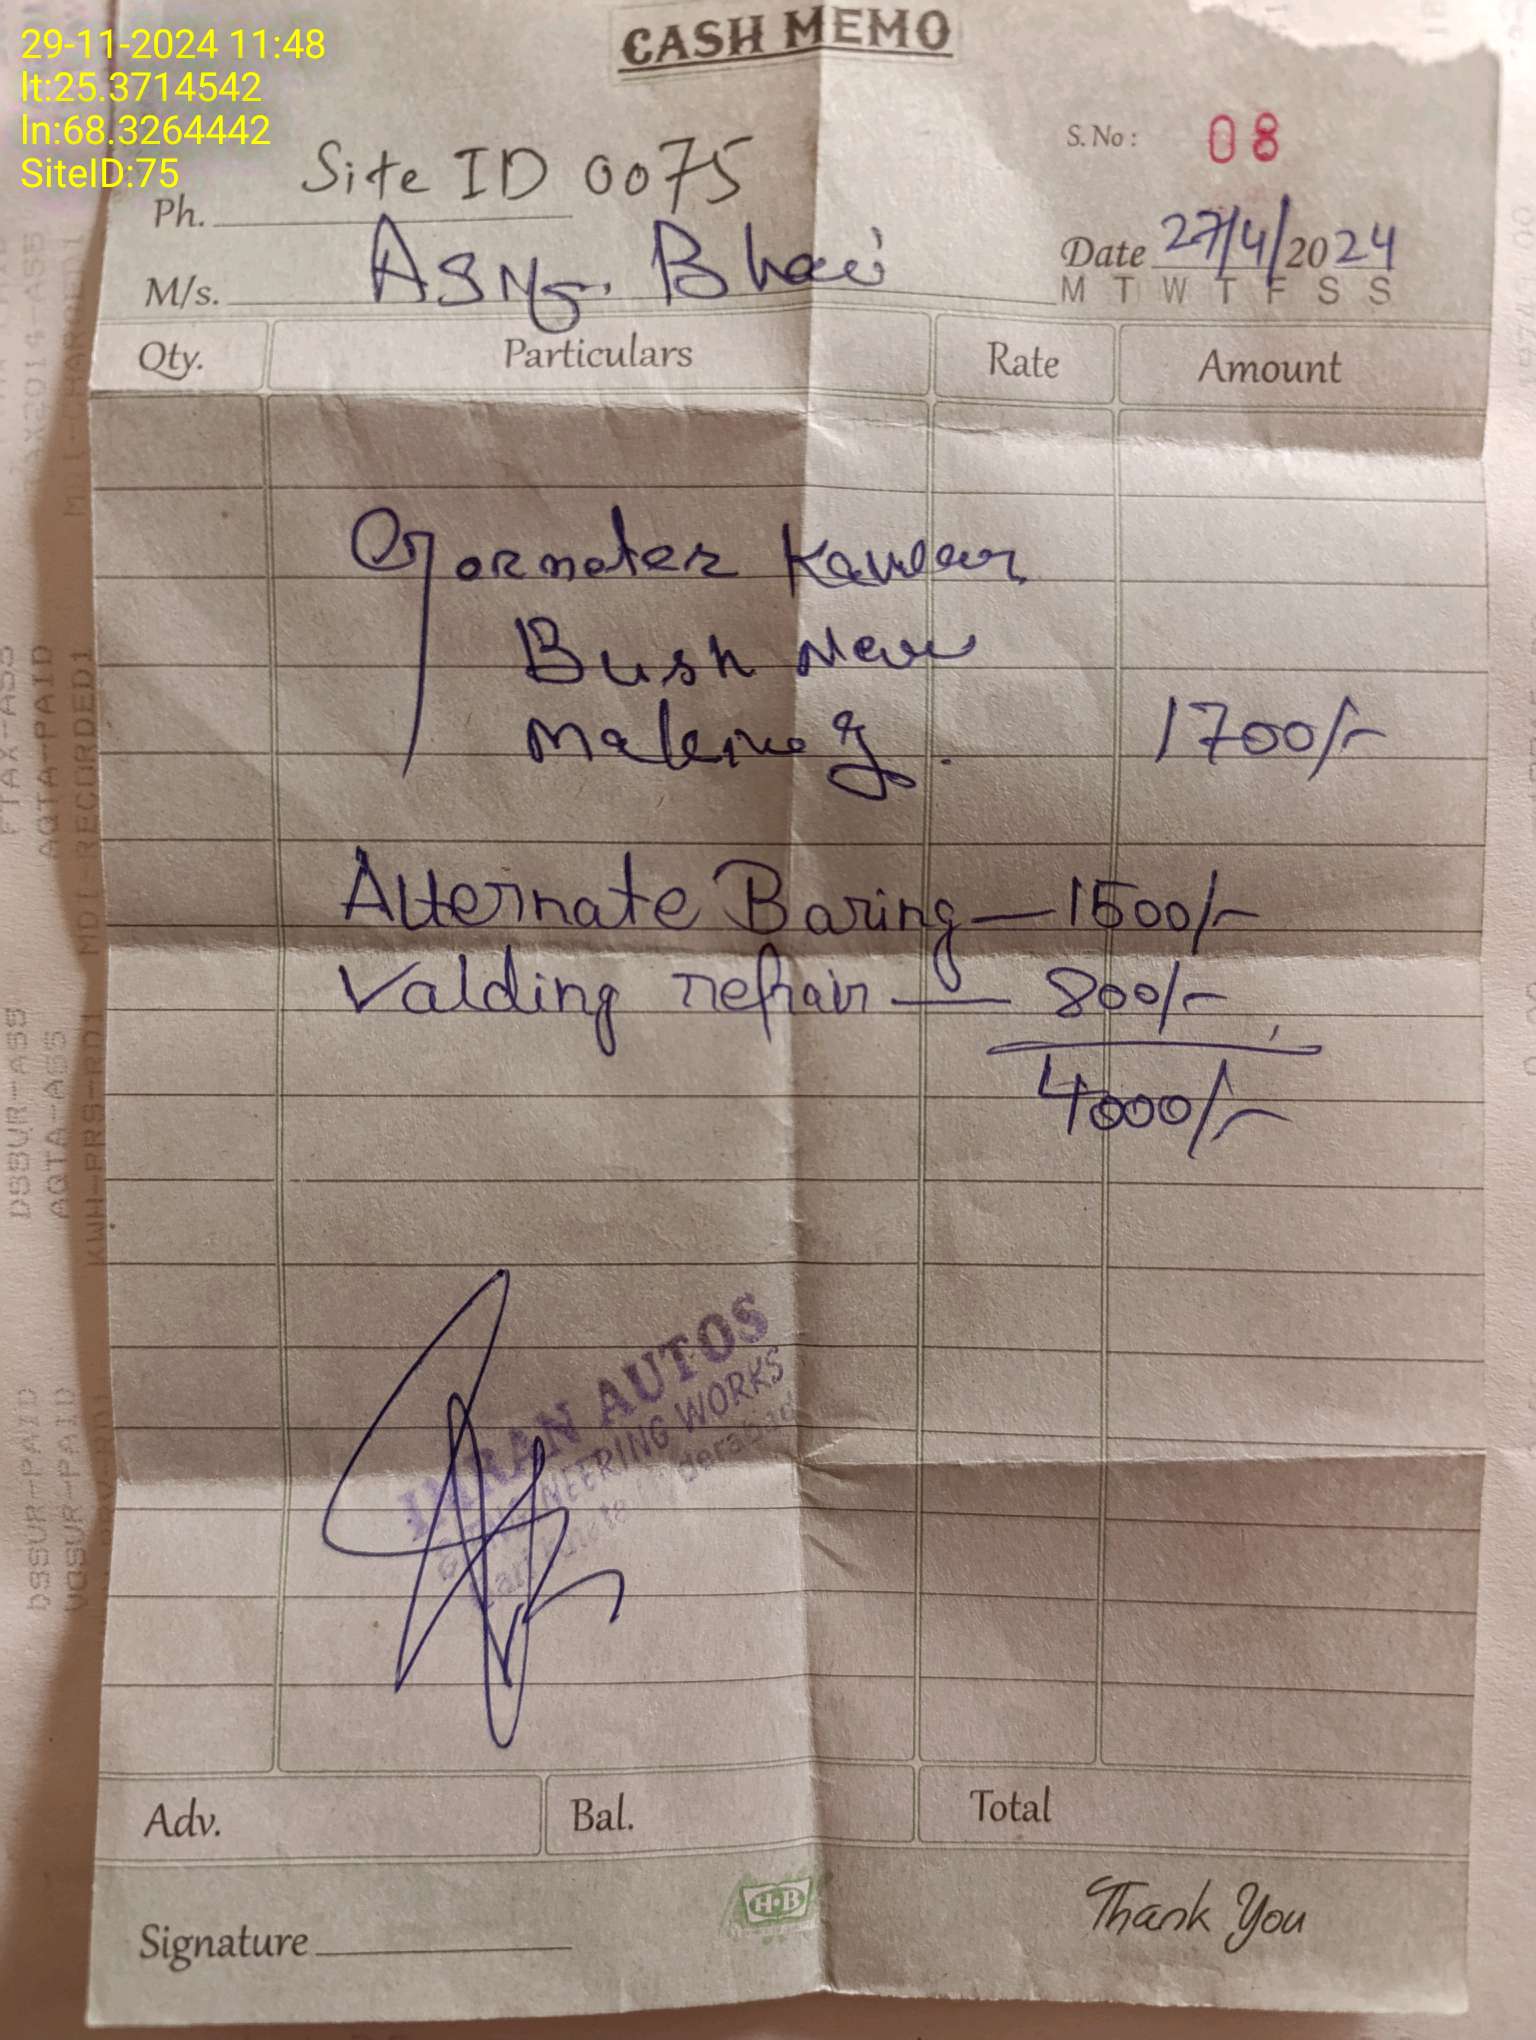 29-11-2024 11:48
lt:25.3714542
ln:68.3264442
SiteID:75
CASH MEMO
S. No : 08
Site ID 0075
Ph.
Date 27/4/2024
M/s. Bhai
M T W T F S S
Qty. Particulars Rate Amount
Bush New
1700/-
Alternate Baring — 1500/-
Valding repair — 800/-
4000/-
IMRAN AUTOS
ENGINEERING WORKS
Hyderabad
Adv. Bal. Total
H·B
Thank You
Signature